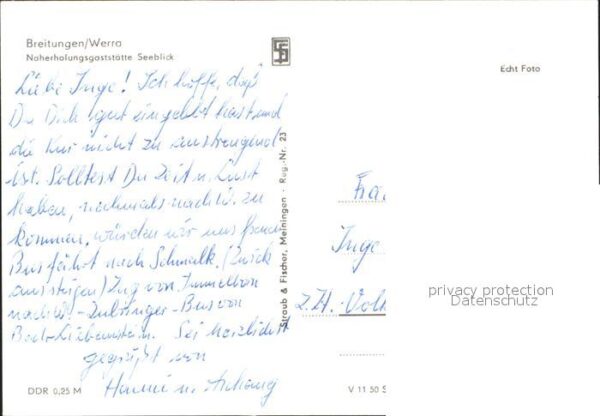 Breitungen/Werra
Naherholungsgaststätte Seeblick
Echt Foto
Liebe Inge! Ich hoffe, daß
Du Dich gut eingelebt hast und
die Kur nicht zu anstrengend
ist. Solltest Du Zeit u. Lust
haben, nochmals nach W. zu
kommen, würden wir uns freuen
Bus fährt nach Schmalk. (Zwick
aussteigen) Zug von Immelborn
nach W. - Zubringer-Bus von
Bad-Liebenstein. Sei herzlichst
gegrüßt von
Hanni u. Anhang
Straub & Fischer, Meiningen · Reg.-Nr. 23
Frau
Inge
z.Zt. Volk
privacy protection
Datenschutz
DDR 0,25 M
V 11 50 S